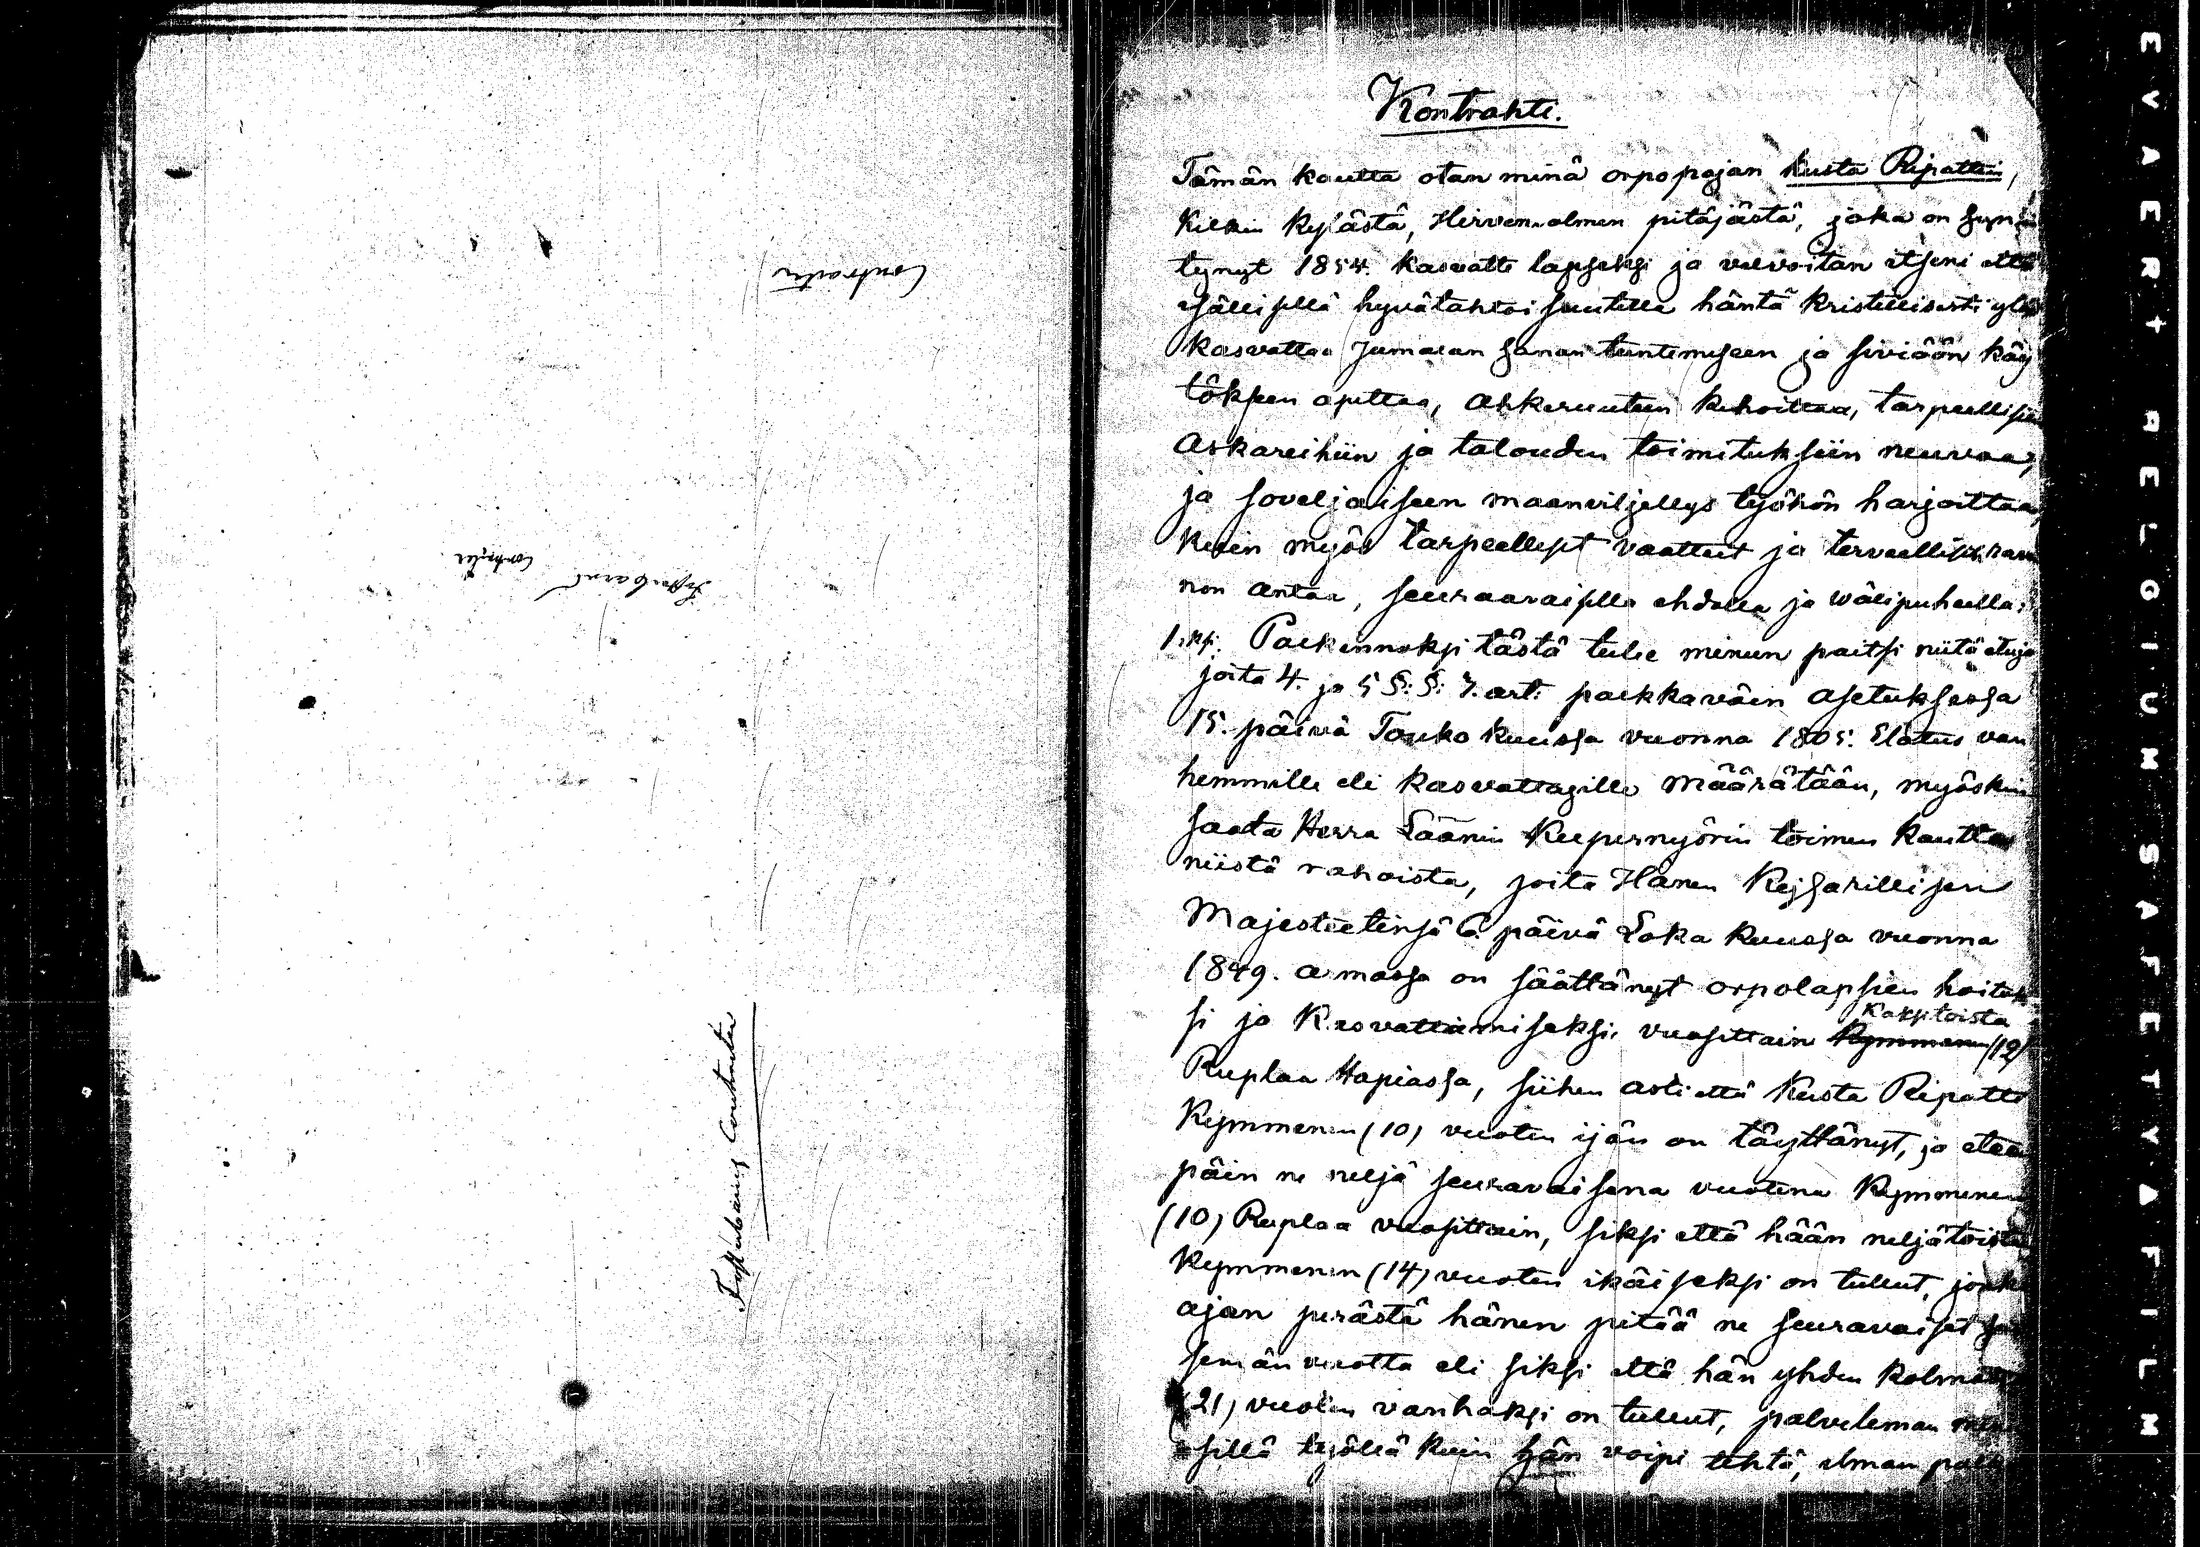 Contracter
Fosterbarns
Contracter
Fosterbarns Contracter
Kontrahti.
Tämän kautta otan minä orpopojan Kusta Ripattin,
Kilkin kylästä, Hirvensalmen pitäjästä, joka on syn
tynyt 1854. kasvatti lapseksi ja velvoitan itseni että
isällisellä hyvätahtoisuutella häntä kristillisesti ylös
kasvattaa Jumalan sanan tuntemiseen ja siviään käy
tökseen opettaa, ahkeruuteen kehoittaa, tarpeellisiin
askareihiin ja talouden toimituksiin neuvoa,
ja soveljaiseen maanviljellys työhön harjoittaa,
kuin myös tarpeelliset vaatteet ja terveellisen ravin
non antaa, seuraavaisella ehdolla ja wälipuheella:
1:ksi. Palkinnoksi tästä tulee minun paitsi niitä etuja
joita 4. ja 5 §:§: 7. art: palkkaväen asetuksessa
15. päivä Touko kuussa vuonna 1805. Elatus van
hemmille eli kasvattajille määrätään, myöskin
saada Herra Läänin Kupernyörin toimen kautta
niistä rahoista, joita Hänen Kejsarillisen
Majesteetinsä 6. päivä Loka kuussa vuonna
1849. armossa on säättänyt orpolapsien hoitok
si ja kasvattamiseksi, vuosittain Kymmenen (12)
Kaksitoista
Ruplaa Hopiassa, siihen asti että Kusta Ripatti
Kymmenen (10) vuoten ijän on täyttänyt, ja eteen
päin ne neljä seuravaisena vuotena Kymmenen
(10) Ruplaa vuosittain, siksi että hään neljätoista
kymmenen (14) vuoten ikäiseksi on tullut, jonka
ajan perästä hänen pitää ne seuravaiset sei
semän vuotta eli siksi että hän yhden kolmatta
(21) vuoten vanhaksi on tullut, palveleman
sillä työllä kuin hän voipi tehtä, ilman
EVAERT BELGIUM SAFETY FILM